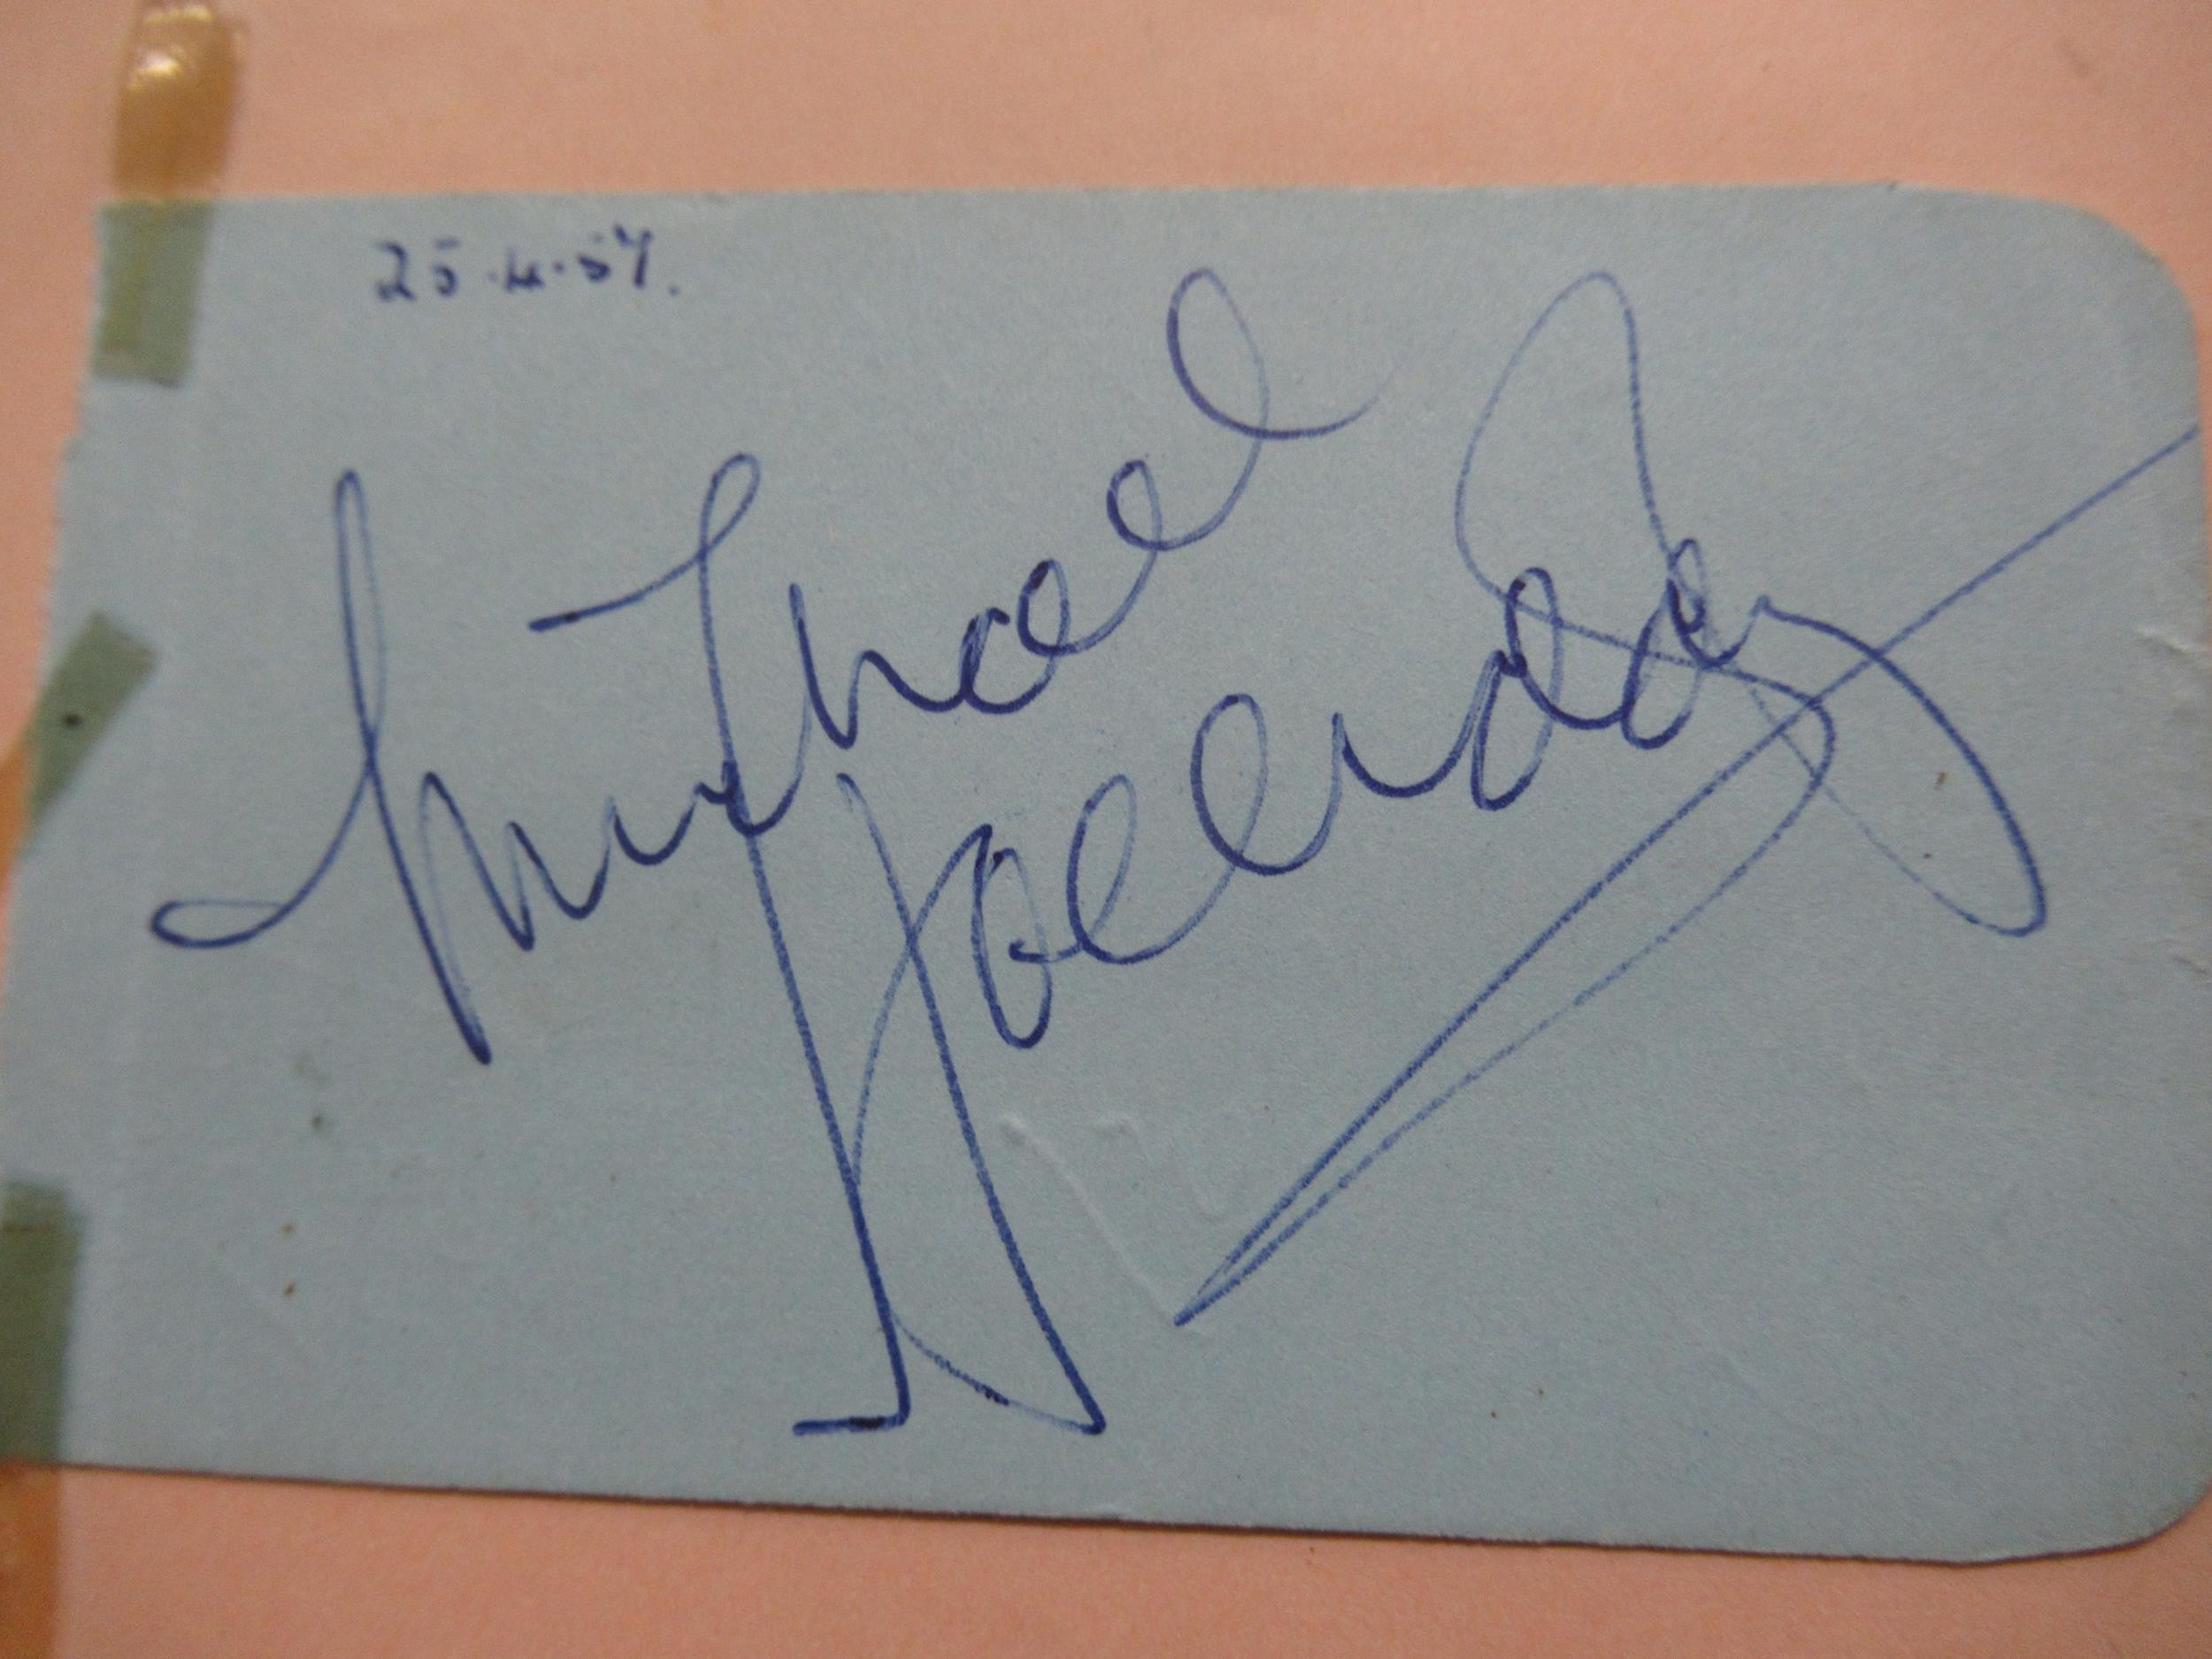 25.4.57.
Michael
Holliday